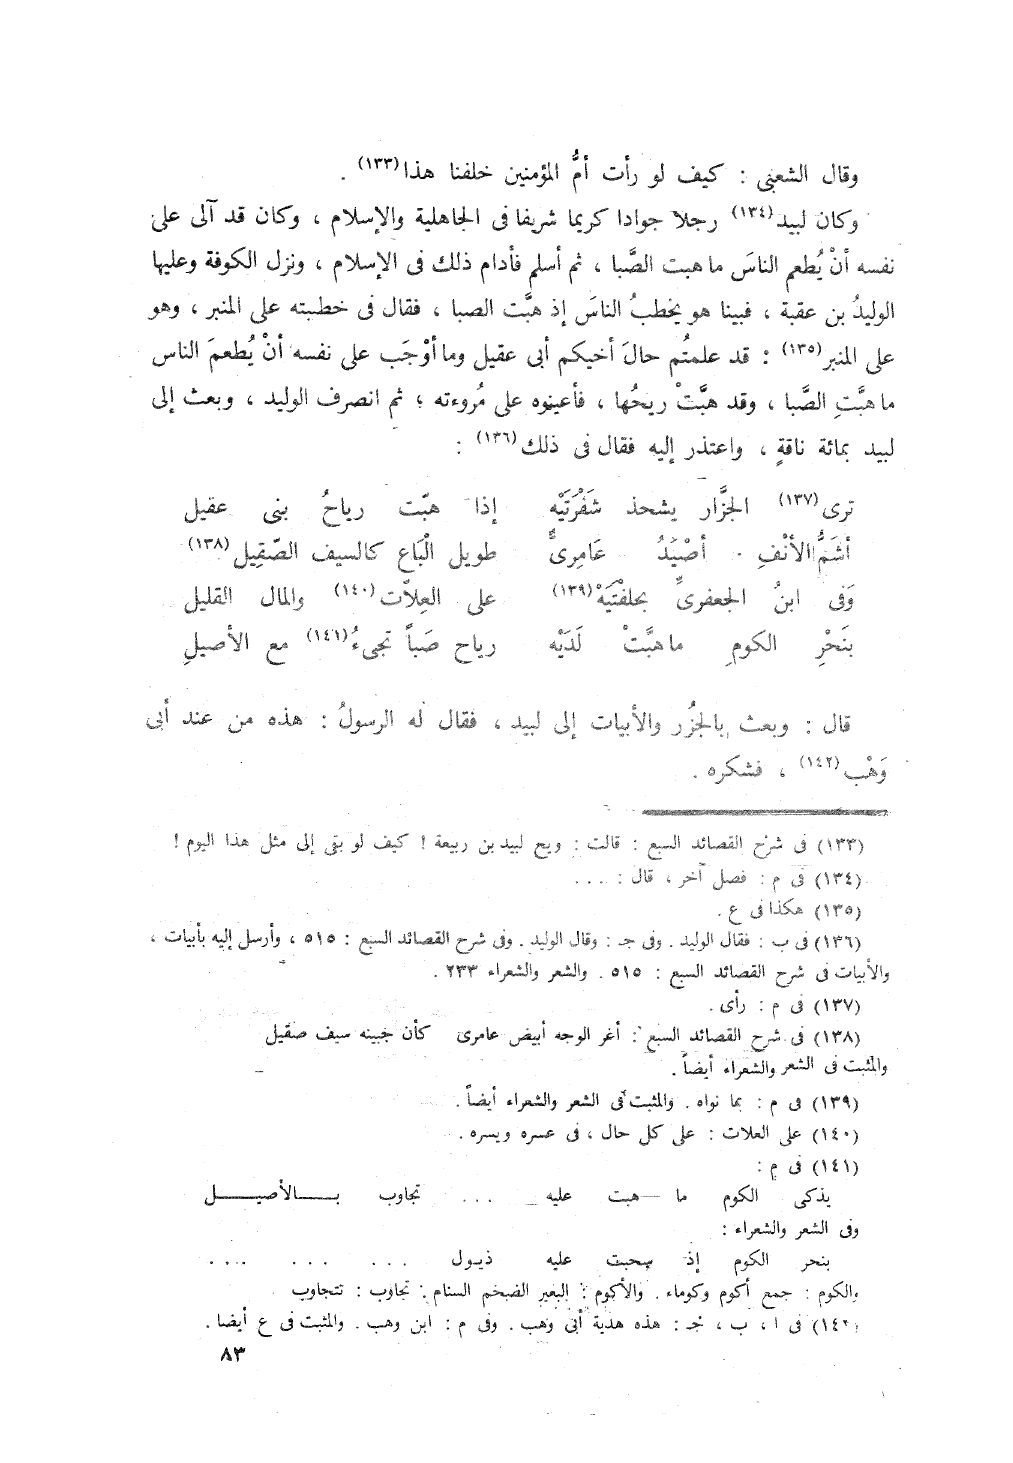 وقال الشعبى : كيف لو رأت أمُّ المؤمنين خلفنا هذا(١٣٣) .
وكان لبيد(١٣٤) رجلا جوادا كريما شريفا فى الجاهلية والإسلام ، وكان قد آلى على
نفسه أنْ يُطعم الناسَ ما هبت الصَّبا ، ثم أسلم فأدام ذلك فى الإسلام ، ونزل الكوفة وعليها
الوليدُ بن عقبة ، فبينا هو يخطبُ الناسَ إذ هبَّت الصبا ، فقال فى خطبته على المنبر ، وهو
على المنبر(١٣٥) : قد علمتُم حالَ أخيكم أبى عقيل وما أوْجَب على نفسه أنْ يُطعمَ الناس
ما هبَّتِ الصَّبا ، وقد هبَّتْ ريحُها ، فأعينوه على مُروءته ؛ ثم انصرف الوليد ، وبعث إلى
لبيد بمائة ناقةٍ ، واعتذر إليه فقال فى ذلك(١٣٦) :
ترى(١٣٧) الجزَّار يشحذ شَفْرَتَيْه إذا هبّت رياحُ بنى عقيل
أشَمُّ الأنْفِ أصْيَدُ عَامِرىٌّ طويل الْبَاع كالسيف الصّقِيل(١٣٨)
وَفى ابنُ الجعفرىِّ بحلفْتَيْهْ(١٣٩) على العِلاّت(١٤٠) والمال القليل
بنَحْرِ الكومِ ما هبَّتْ لَدَيْه رياح صَباً تجىءُ(١٤١) مع الأصيلِ
قال : وبعث بالجُزُر والأبيات إلى لبيد ، فقال له الرسولُ : هذه من عند أبى
وَهْب(١٤٢) ، فشكره .
(١٣٣) فى شرح القصائد السبع : قالت : ويح لبيد بن ربيعة ! كيف لو بقى إلى مثل هذا اليوم !
(١٣٤) فى م : فصل آخر ، قال : . . .
(١٣٥) هكذا فى ع .
(١٣٦) فى ب : فقال الوليد . وفى جـ : وقال الوليد . وفى شرح القصائد السبع : ٥١٥ ، وأرسل إليه بأبيات ،
والأبيات فى شرح القصائد السبع : ٥١٥ . والشعر والشعراء ٢٣٣ .
(١٣٧) فى م : رأى .
(١٣٨) فى شرح القصائد السبع : أغر الوجه أبيض عامرى كأن جبينه سيف صقيل
والمثبت فى الشعر والشعراء أيضاً .
(١٣٩) فى م : بما نواه . والمثبت فى الشعر والشعراء أيضاً .
(١٤٠) على العلات : على كل حال ، فى عسره ويسره .
(١٤١) فى م :
يذكى الكوم ما هبت عليه . . . تجاوب بـــالأصيــــل
وفى الشعر والشعراء :
بنحر الكوم إذ سحبت عليه ذيـول . . . . . . . . . .
والكوم : جمع أكوم وكوماء . والأكوم : البعير الضخم السنام . تجاوب : تتجاوب
(١٤٢) فى ا ، ب ، جـ : هذه هدية أبى وهب . وفى م : ابن وهب . والمثبت فى ع أيضا .
٨٣